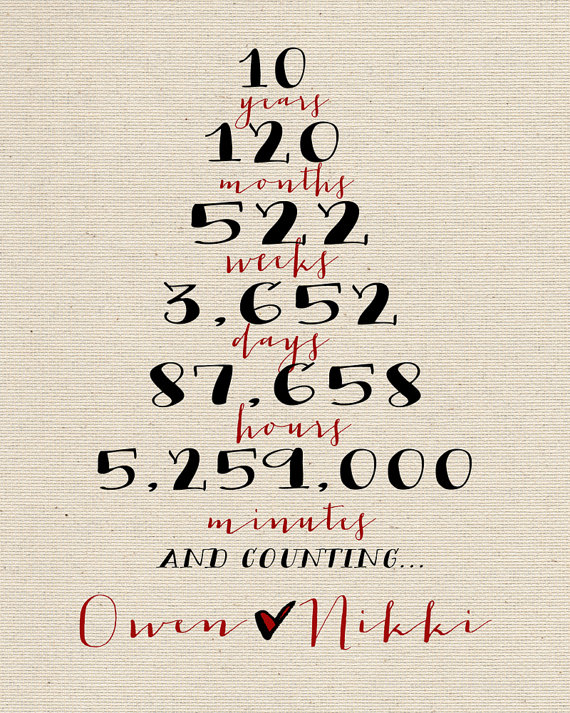 10
years
120
months
522
weeks
3,652
days
87,658
hours
5,259,000
minutes
AND COUNTING...
Owen Nikki